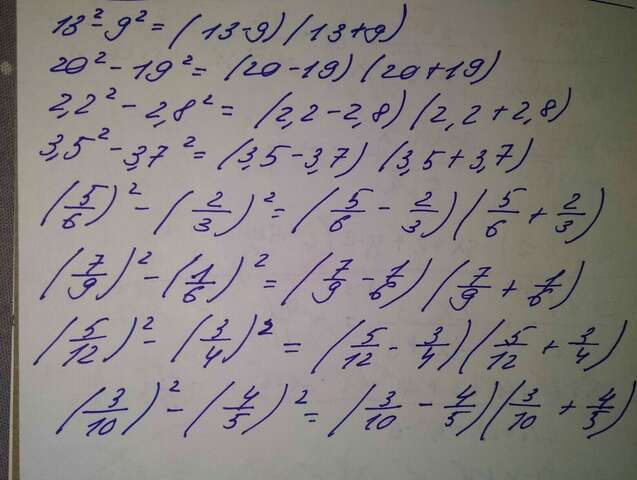 13² - 9² = (13-9)(13+9)
20² - 19² = (20-19)(20+19)
2,2² - 2,8² = (2,2-2,8)(2,2+2,8)
3,5² - 3,7² = (3,5-3,7)(3,5+3,7)
(5/6)² - (2/3)² = (5/6 - 2/3)(5/6 + 2/3)
(7/9)² - (1/6)² = (7/9 - 1/6)(7/9 + 1/6)
(5/12)² - (3/4)² = (5/12 - 3/4)(5/12 + 3/4)
(3/10)² - (4/5)² = (3/10 - 4/5)(3/10 + 4/5)